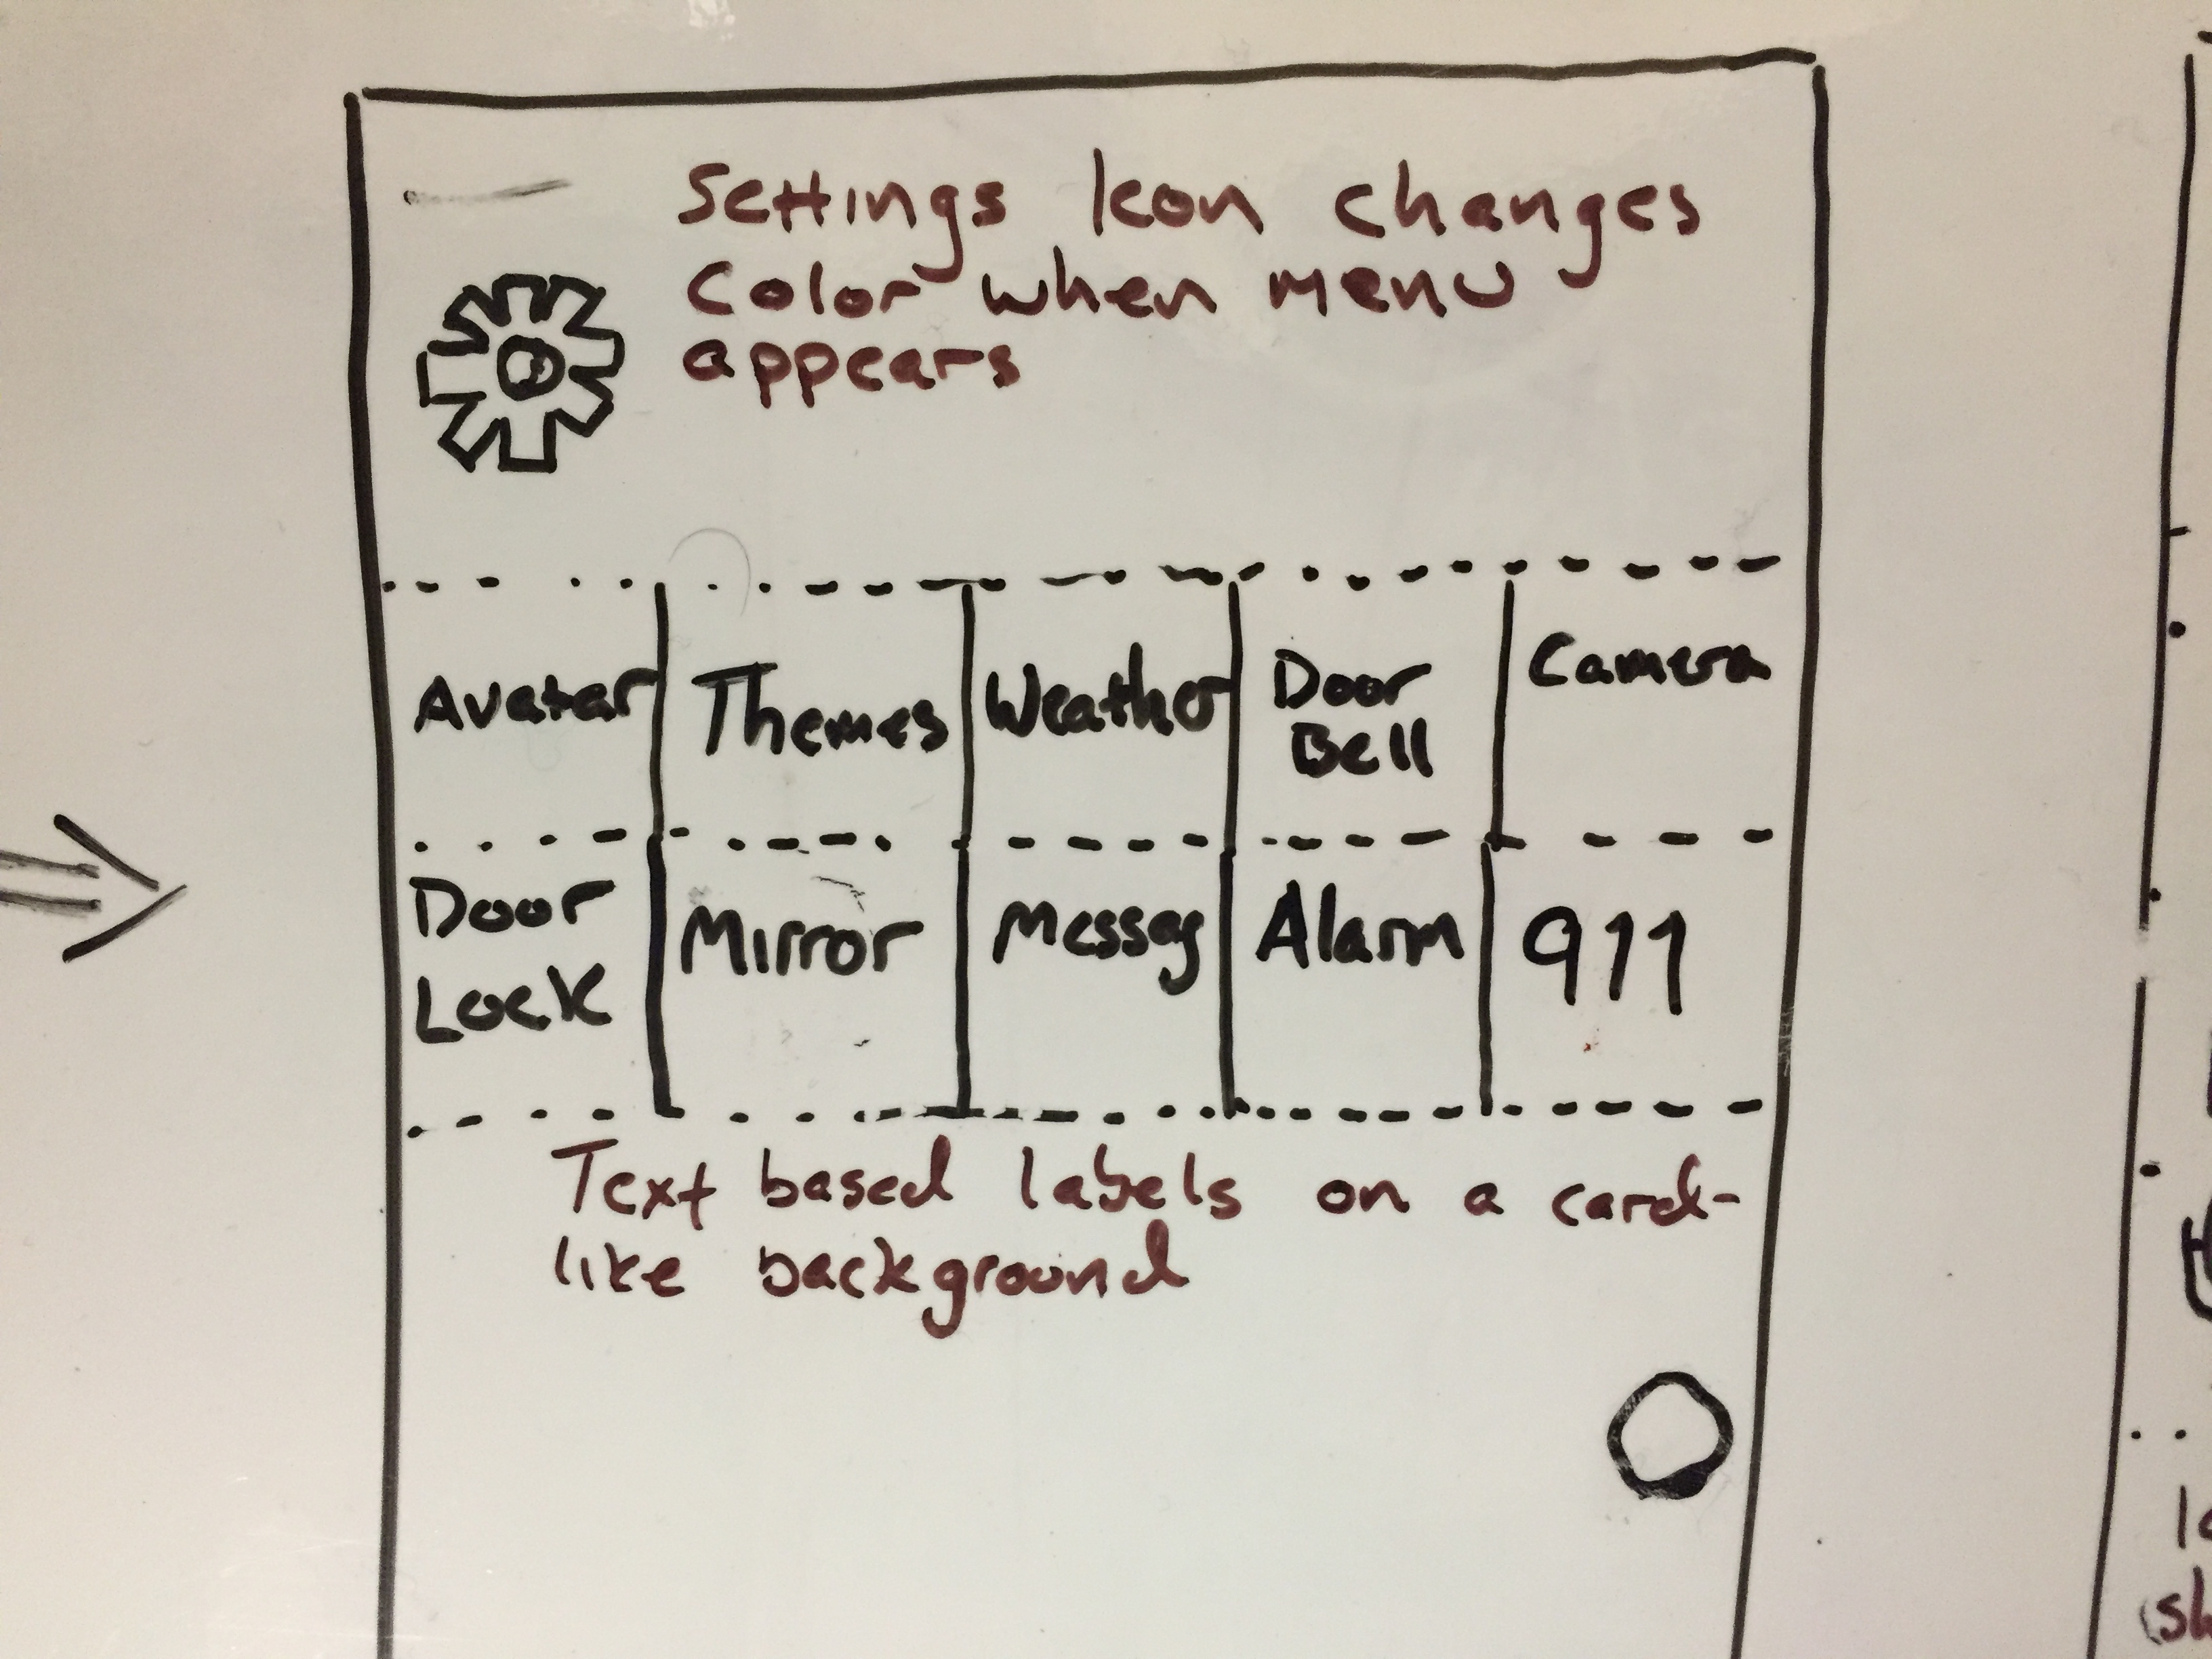 Settings Icon changes
Color when menu
appears
Avatar
Themes
Weather
Door
Bell
Camera
Door
Lock
Mirror
Messag
Alarm
911
Text based labels on a card-
like background